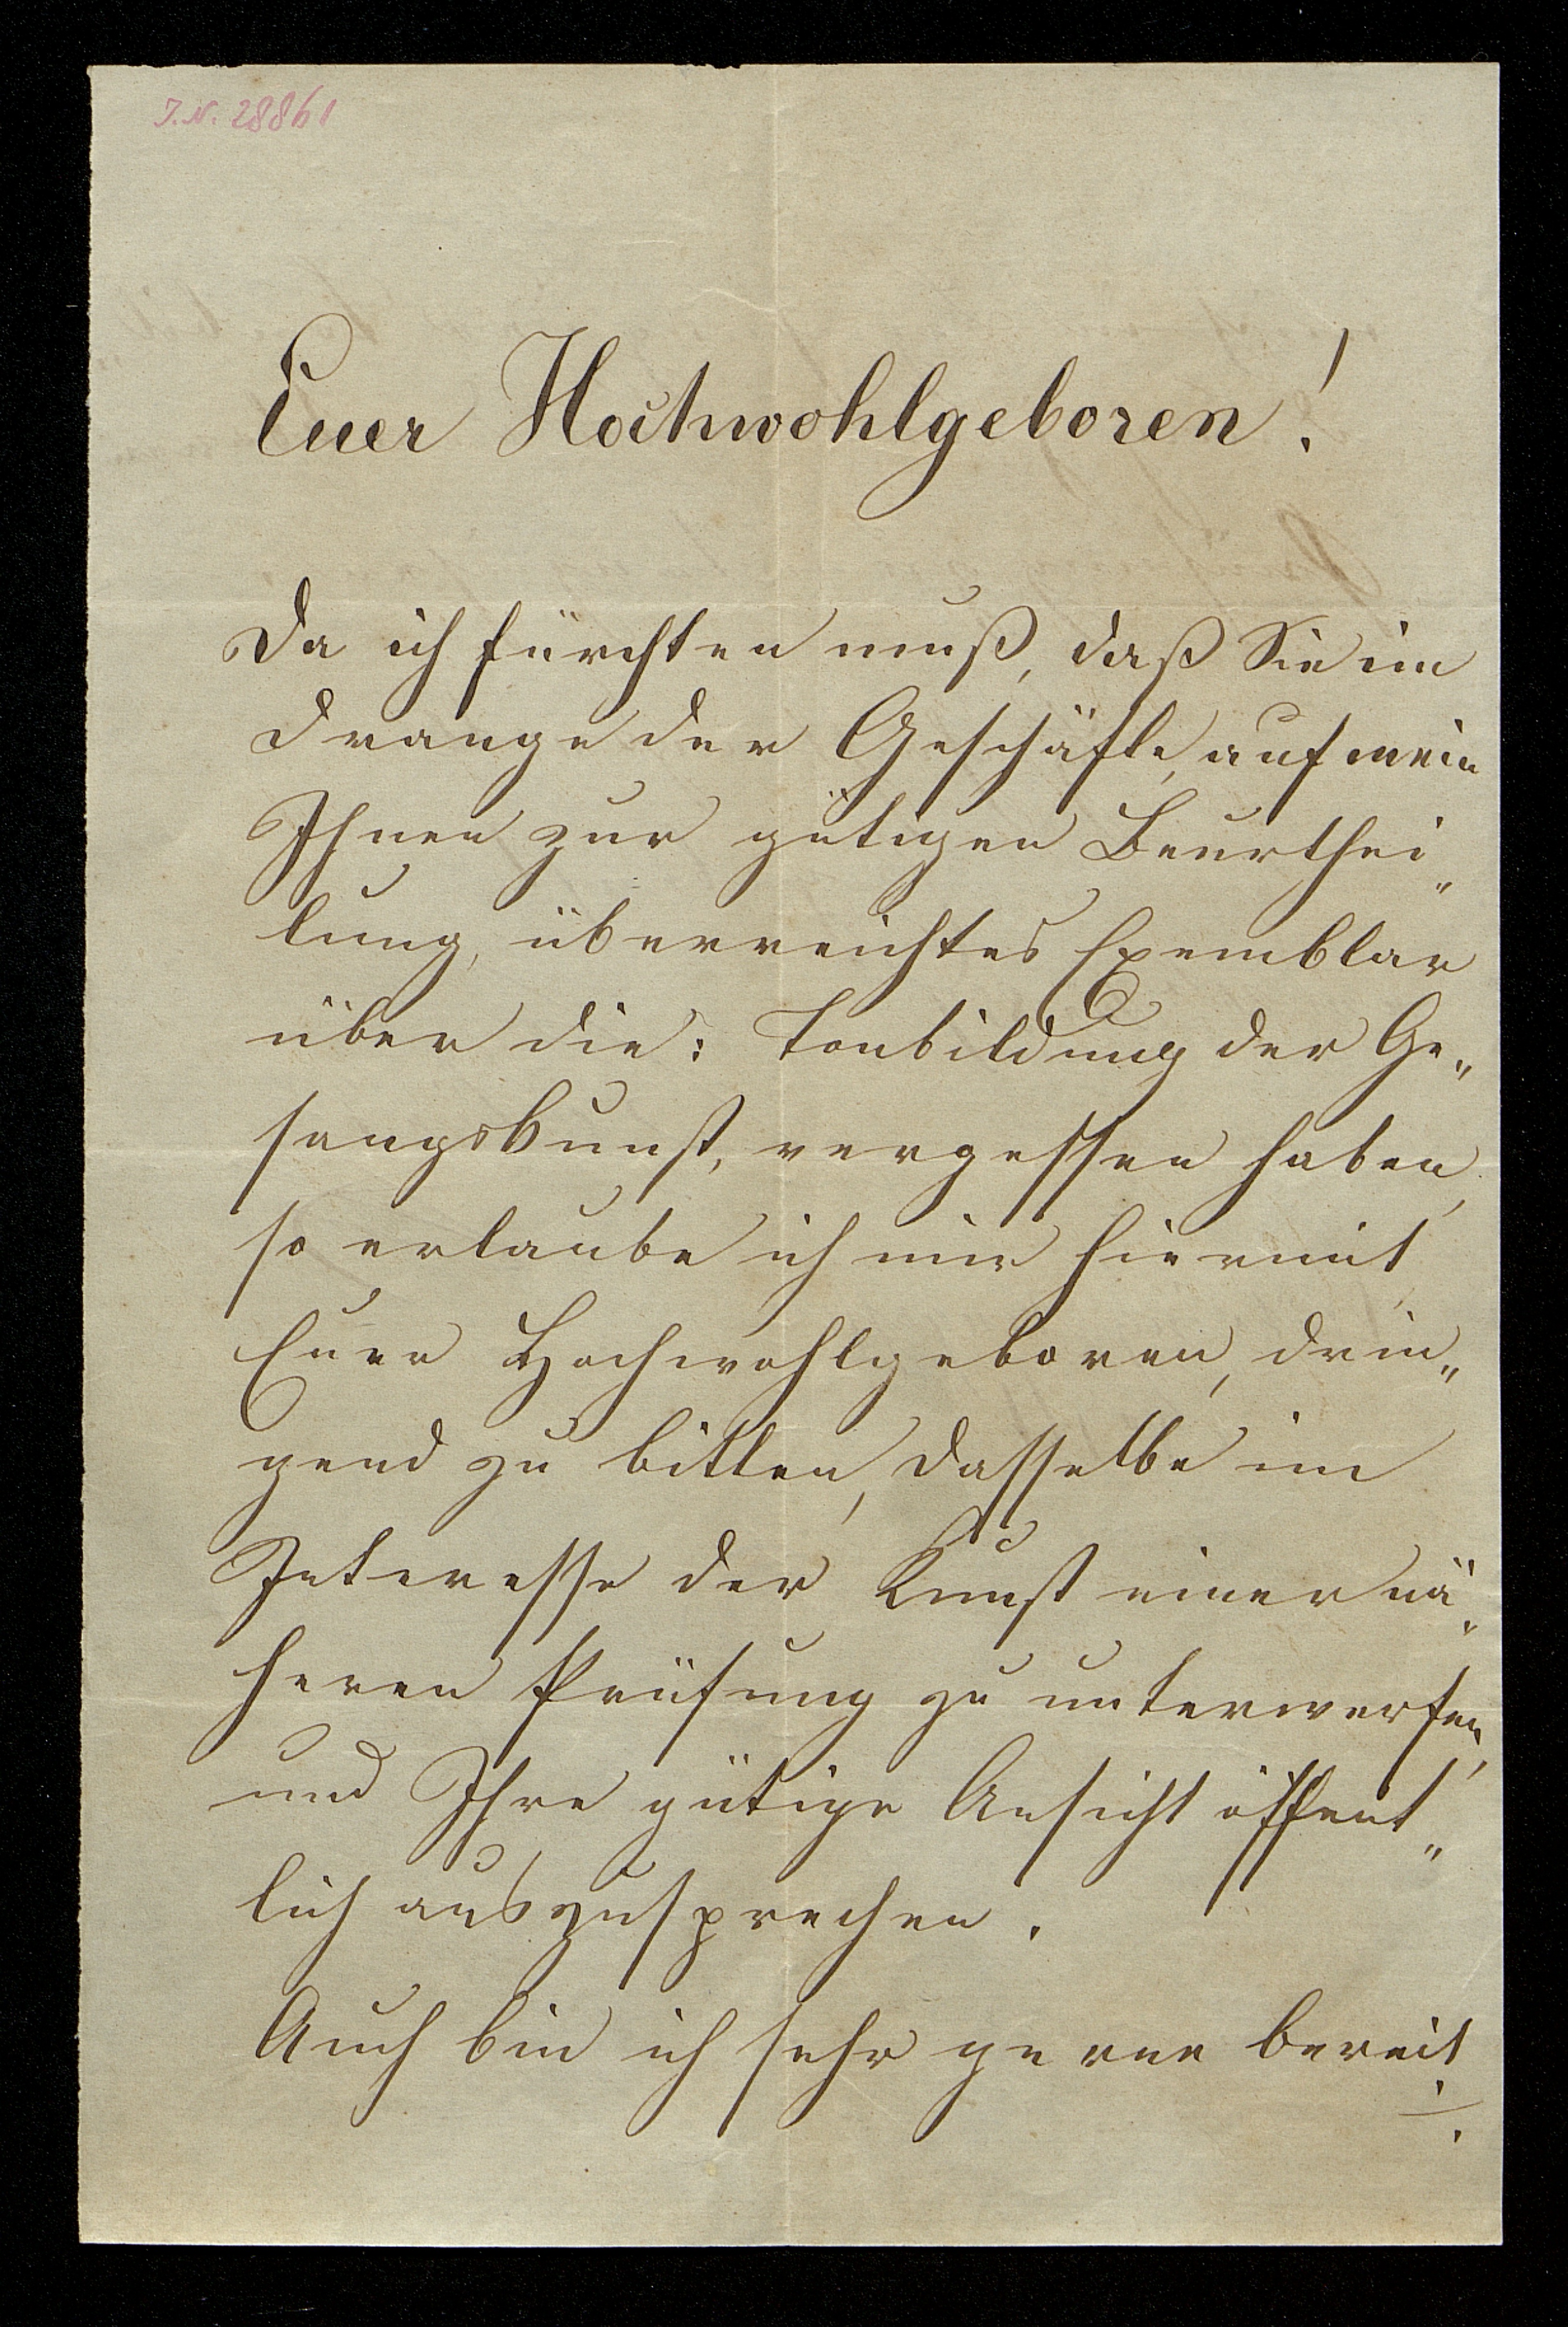 J.N. 28861
Euer Hochwohlgeboren!
Da ich fürchten muß, daß Sie im
Drange der Geschäfte, auf mein
Ihnen zur gütigen Beurthei„
lung, überreichtes Exemblar
über die: Tonbildung der Ge„
sangskunst, vergessen haben,
so erlaube ich mir hiermit,
Euer Hochwohlgeboren, drin„
gend zu bitten, dasselbe im
Interesse der Kunst einer nä„
heren Prüfung zu unterwerfen,
und Ihre gütige Ansicht öffent„
lich auszusprechen.
Auch bin ich sehr gerne bereit
./.